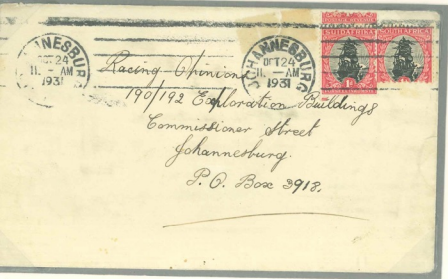 JOHANNESBURG
OCT 24
11. - AM
1931
SUIDAFRIKA
SOUTH AFRICA
1D
Racing Opinions
190/192 Exploration Buildings
Commissioner Street
Johannesburg.
P.O. Box 3918.